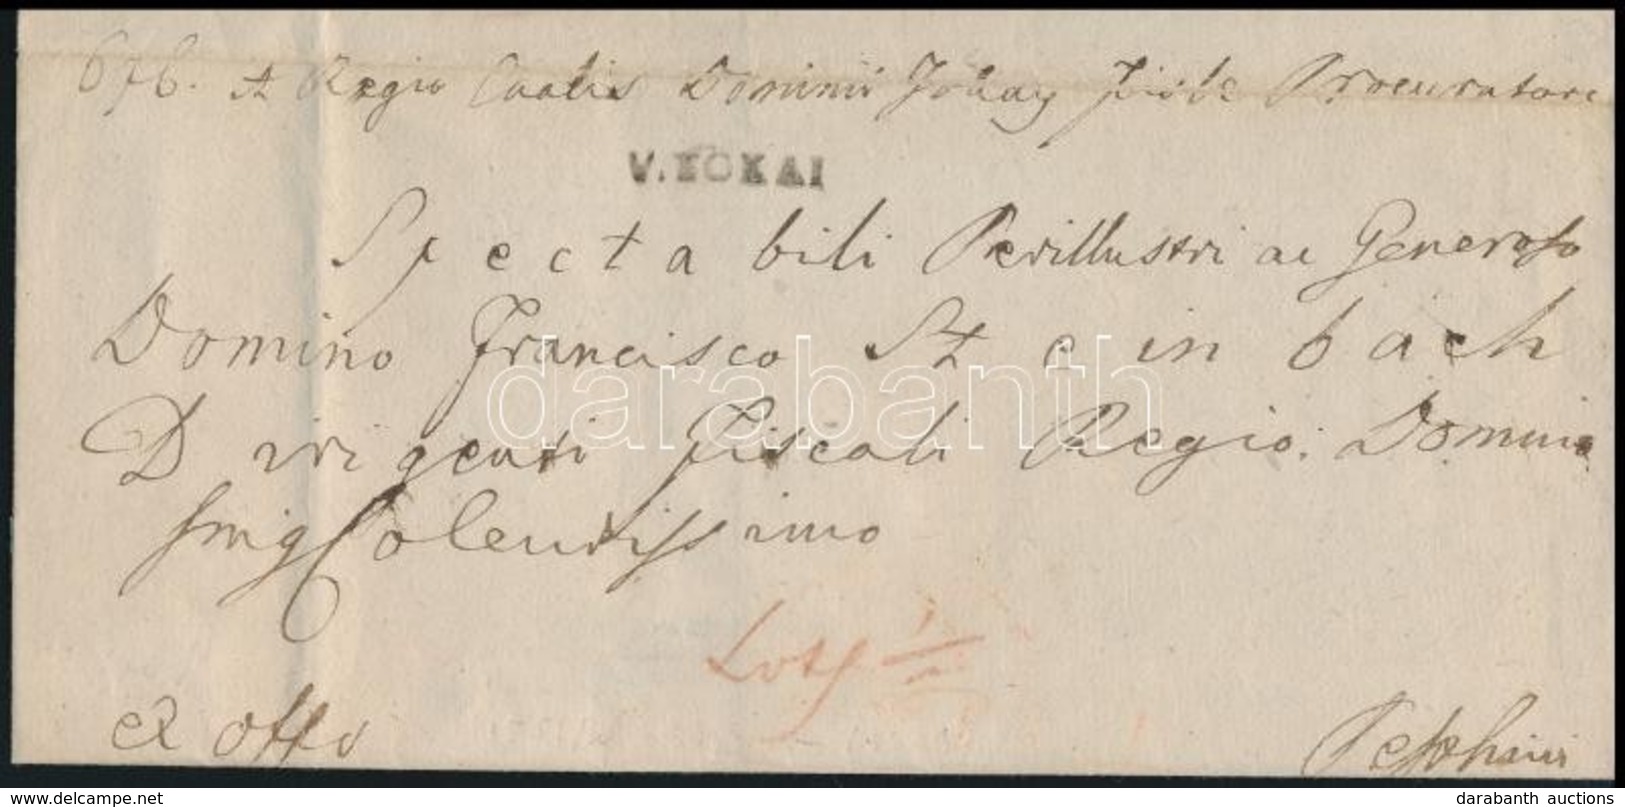 676. A Regio Caalis Dominii Tokay Procuratore
V.TOKAI
Spectabili Perillustri ac Generoso
Domino Francisco Steinbach
Dirigenti Fiscali Regio. Domino
Colendissimo
Loth 1/2
ex offo
darabanth
www.delcampe.net
darabanth auctions